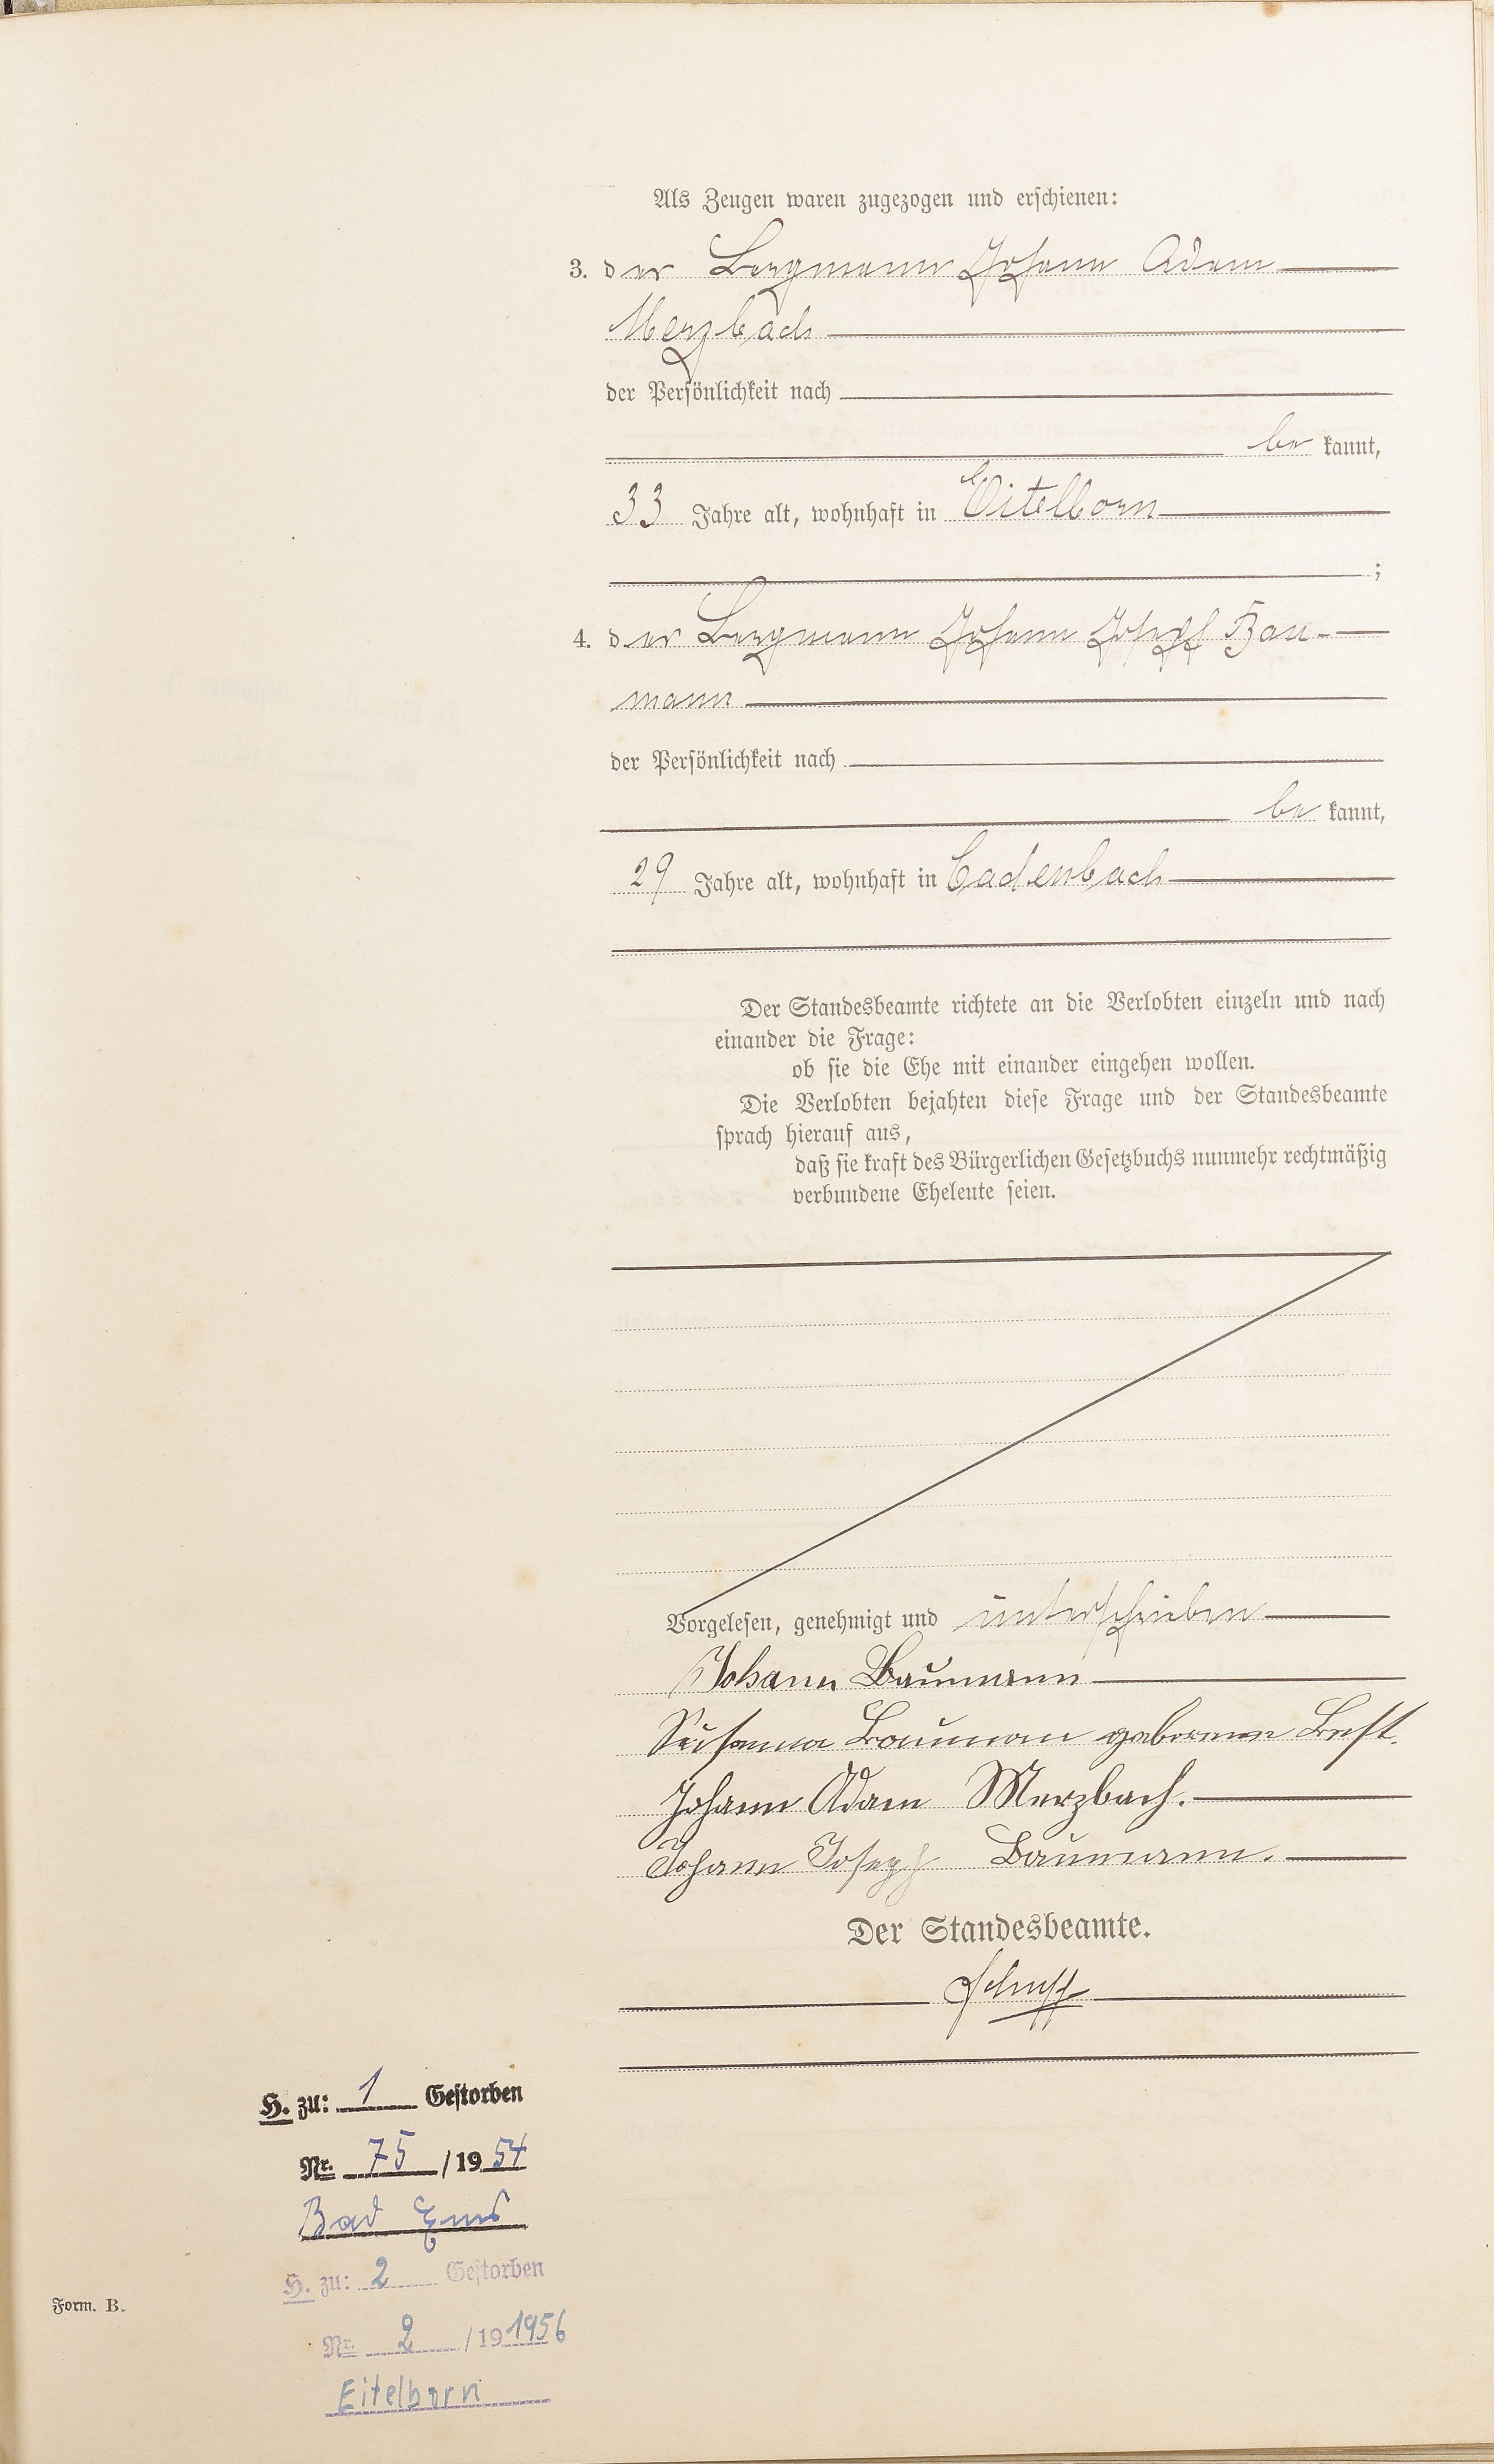 Als Zeugen waren zugezogen und erschienen:
3. der Bergmann Johann Adam
Merzbach
der Persönlichkeit nach
be kannt,
33 Jahre alt, wohnhaft in Eitelborn
;
4. der Bergmann Johann Joseph Bau-
mann
der Persönlichkeit nach
be kannt,
29 Jahre alt, wohnhaft in Cadenbach
Der Standesbeamte richtete an die Verlobten einzeln und nach
einander die Frage:
ob sie die Ehe mit einander eingehen wollen.
Die Verlobten bejahten diese Frage und der Standesbeamte
sprach hierauf aus,
daß sie kraft des Bürgerlichen Gesetzbuchs nunmehr rechtmäßig
verbundene Eheleute seien.
Vorgelesen, genehmigt und unterschrieben
Johann Baumann
Susanna Bauman geborene
Johann Adam Merzbach.
Johann Joseph Baumann.
Der Standesbeamte.
H. zu: 1 Gestorben
Nr. 75 / 19 54
Bad Ems
H. zu: 2 Gestorben
Nr. 2 / 19 1956
Eitelborn
Form. B.